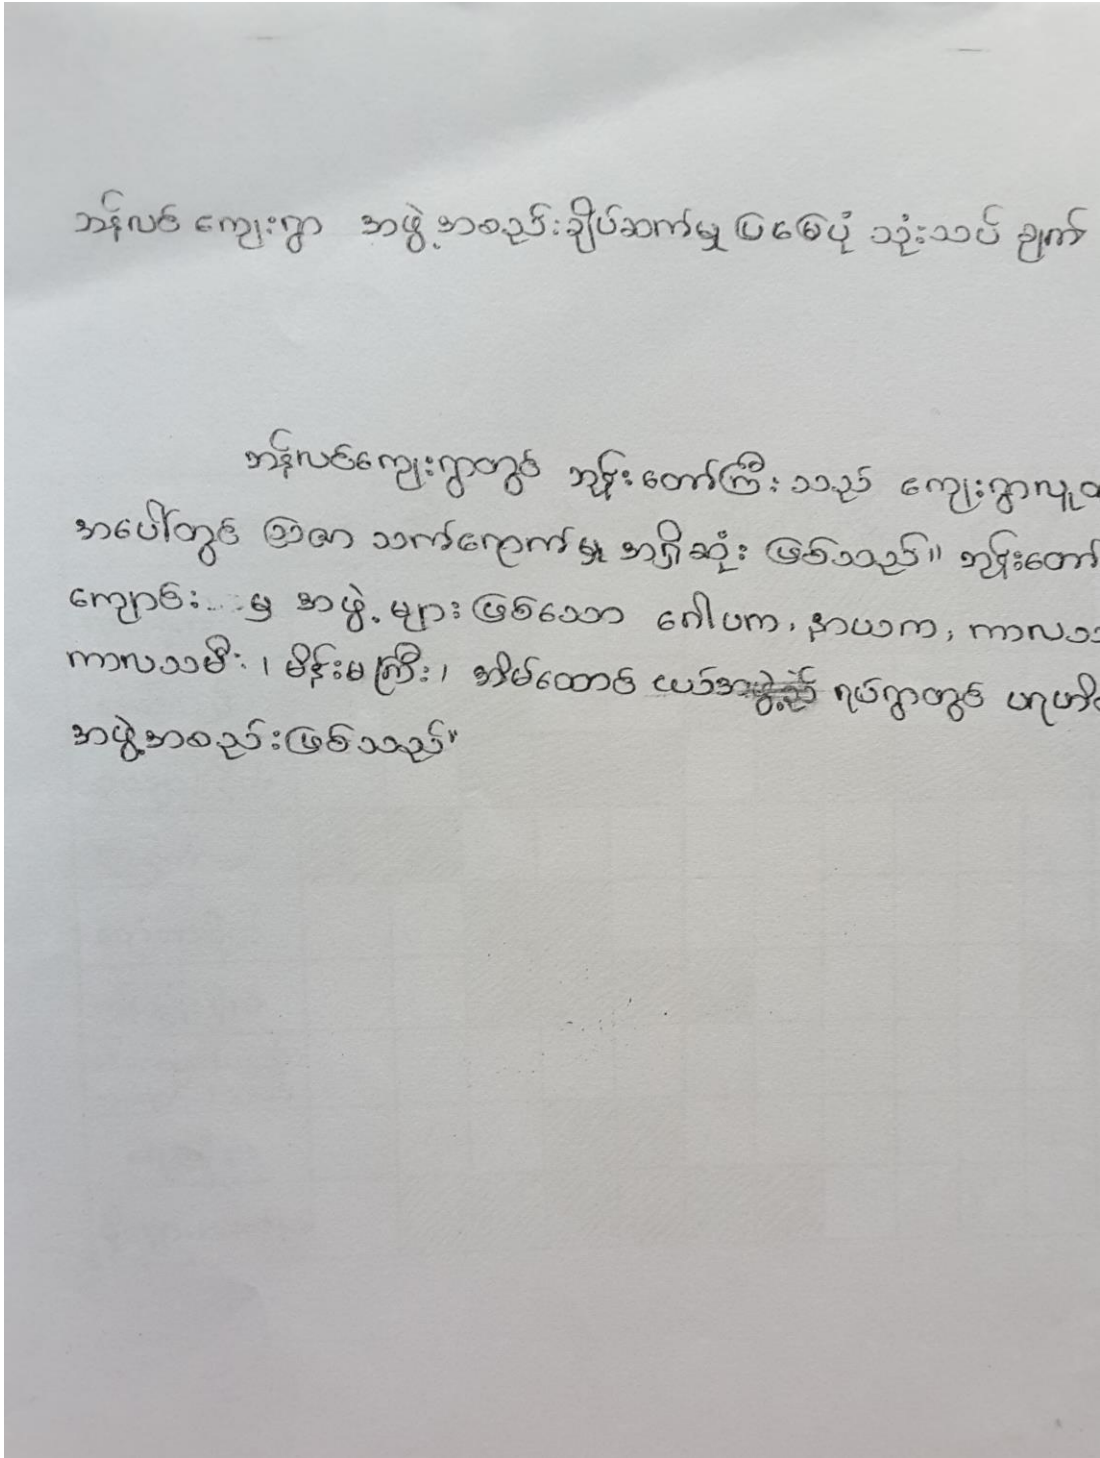 ဘန်လင် ကျေးရွာ အဖွဲ့အစည်းချိပ်ဆက်မှု ပြမြေပုံ သုံးသပ် ချက်
ဘန်လင်ကျေးရွာတွင် ဘုန်းတော်ကြီး သည် ကျေးရွာလူထ
အပေါ်တွင် ဩဇာ သက်ရောက်မှု အရှိဆုံး ဖြစ်သည်။ ဘုန်းတော်
ကျောင်း မှ အဖွဲ့များဖြစ်သော ဂေါပက, နာယက, ကာလသ
ကာလသမီး ၊ မိန်းမကြီး ၊ အိမ်ထောင် ငယ် ရပ်ရွာတွင် ပရဟိ
အဖွဲ့အစည်းဖြစ်သည်။